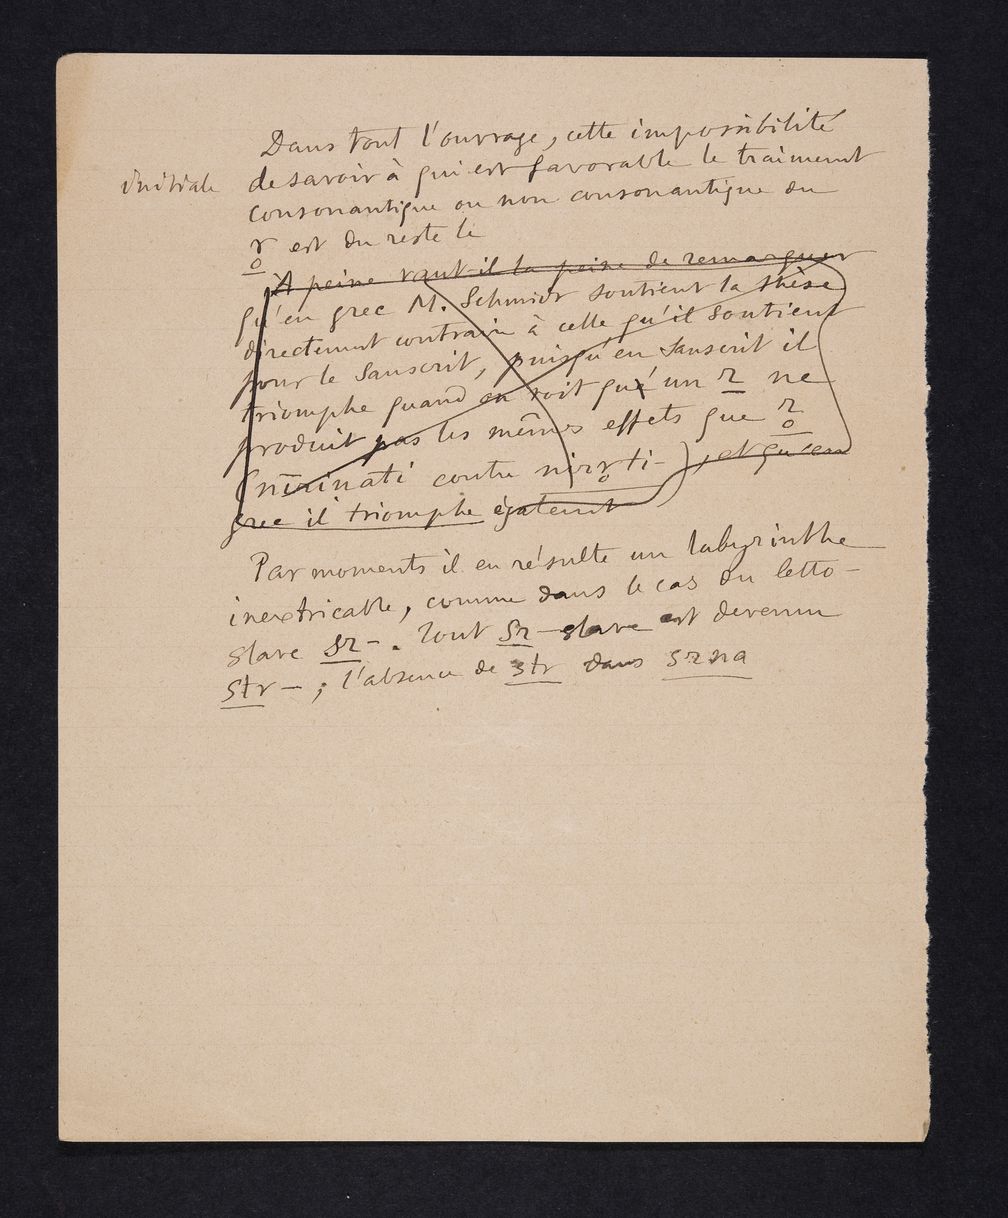 Dans tout l'ouvrage, cette impossibilité
initiale de savoir à qui est favorable le traitement
consonantique ou non consonantique du
r̥ est du reste le
À peine vaut-il la peine de remarquer
qu'en grec M. Schmidt soutient la thèse
directement contraire à celle qu'il soutient
pour le Sanscrit, puisqu'en Sanscrit il
triomphe quand on voit qu'un r ne
produit pas les mêmes effets que r̥
contre nirr̥ti-), et qu'en
grec il triomphe également
Par moments il en résulte un labyrinthe
inextricable, comme dans le cas du letto-
slave sr-. Tout sr- slave est devenu
str-; l'absence de str dans srna